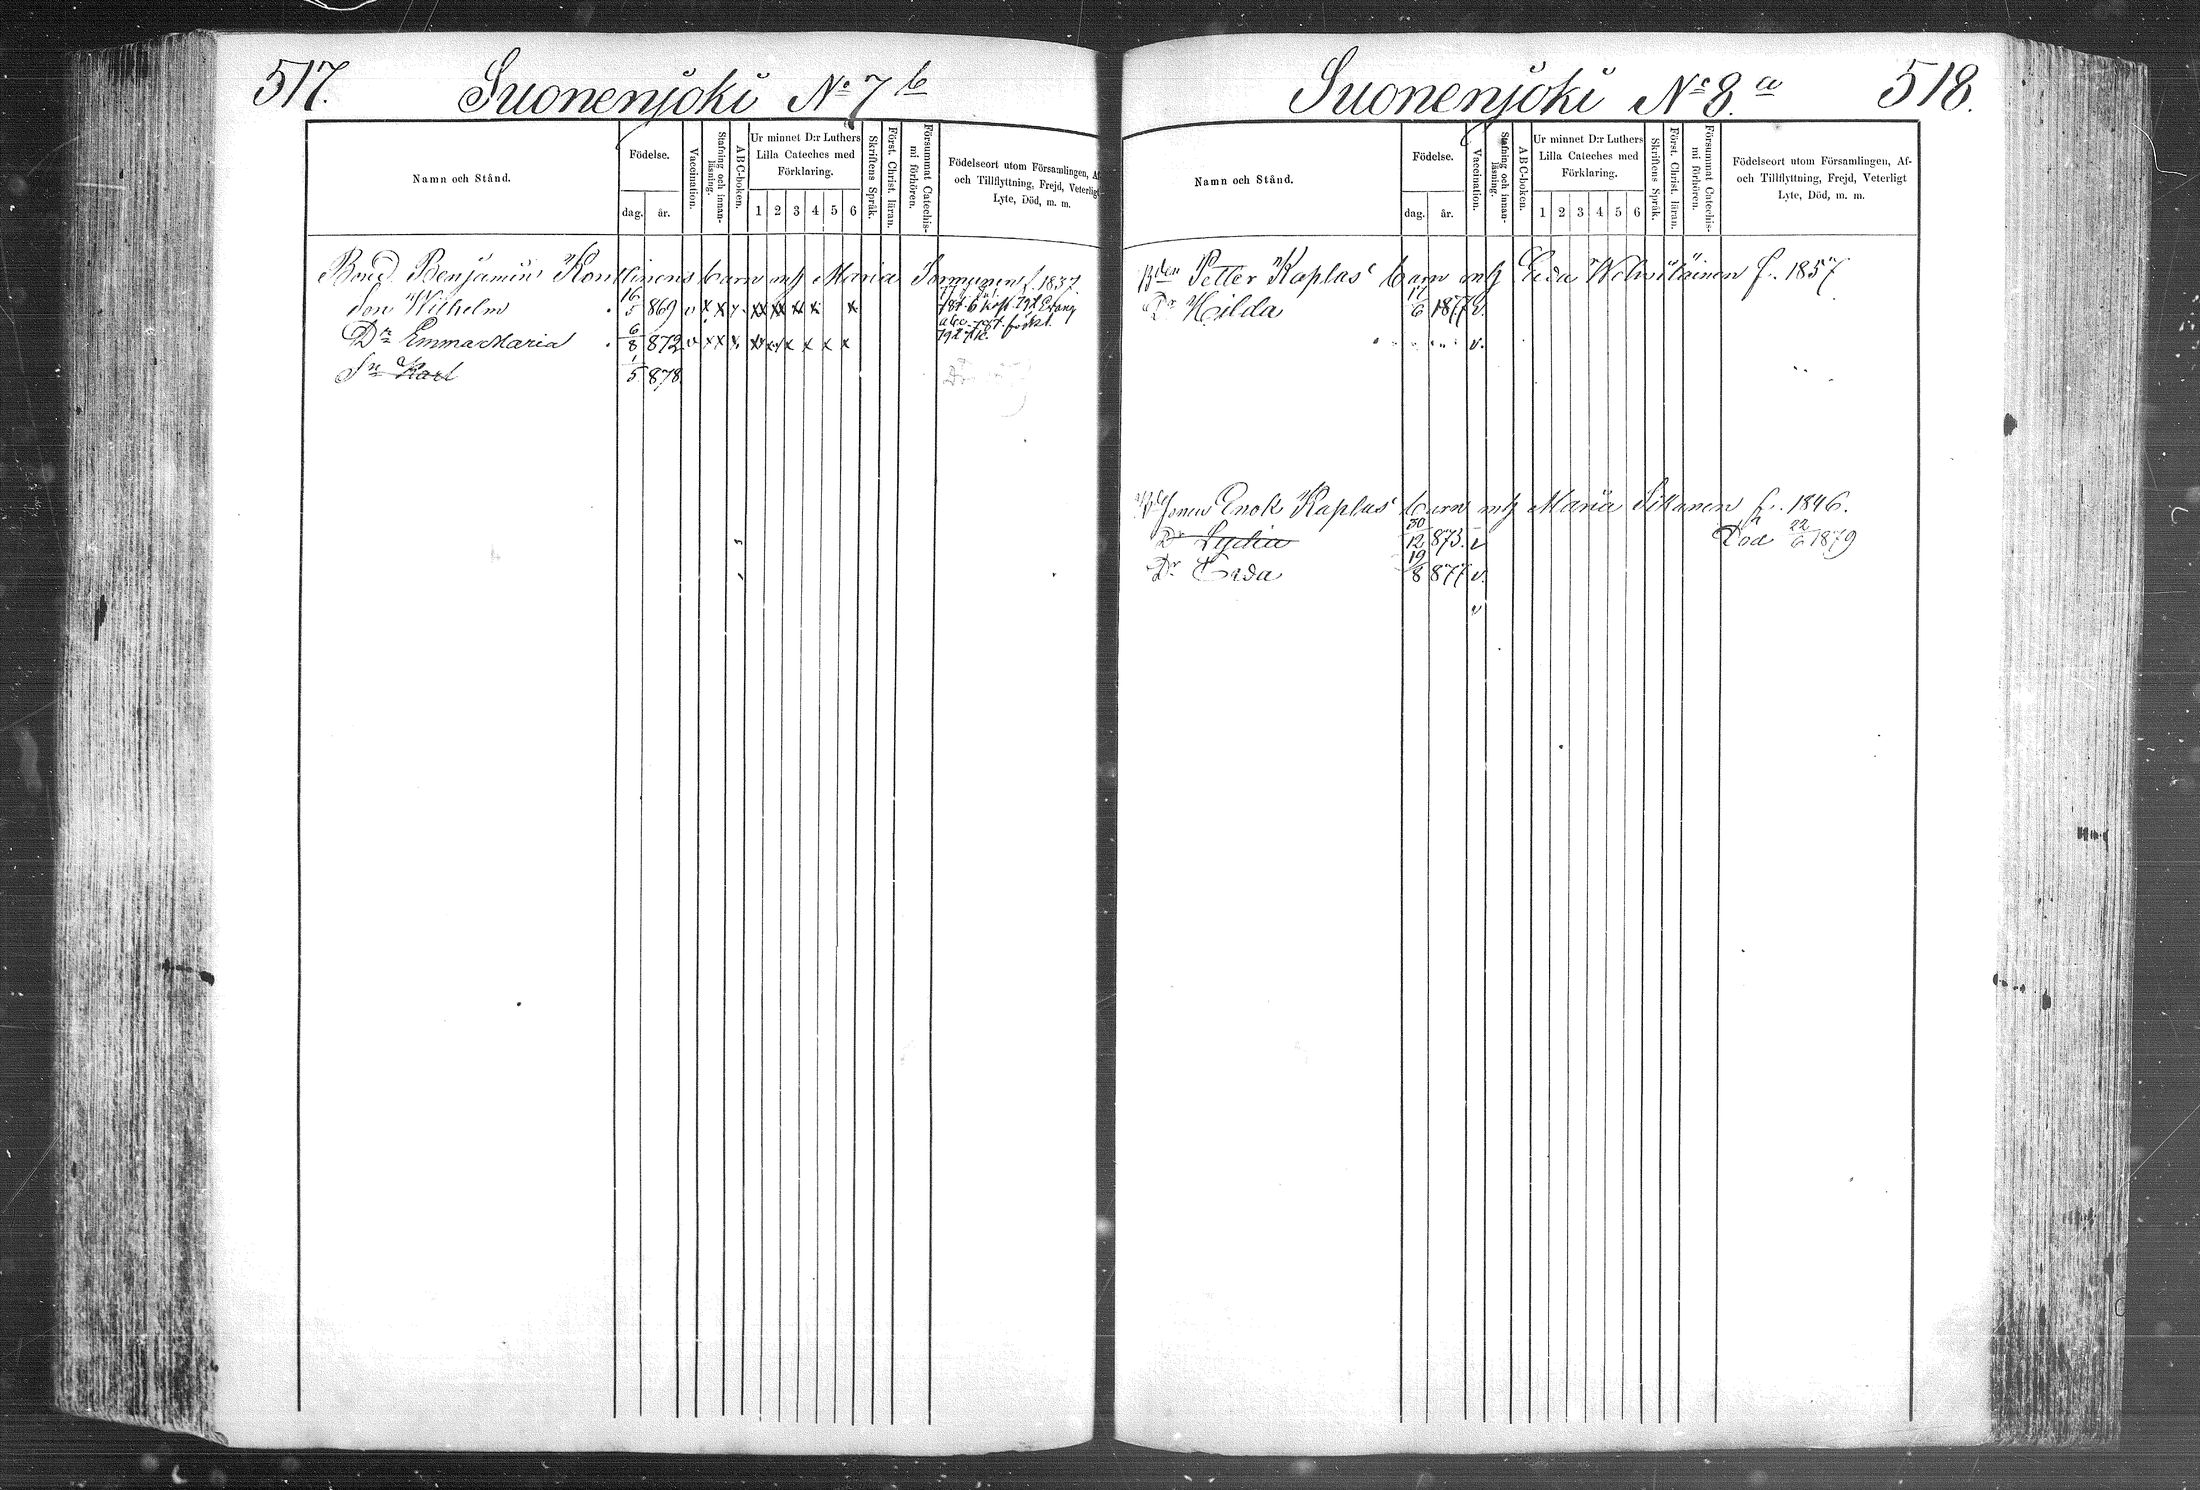 517.
Suonenjoki No 7 b
Namn och Stånd.
Födelse.
dag.
år.
Vaccination.
Stafning och innan-
läsning.
ABC-boken.
Ur minnet D:r Luthers
Lilla Cateches med
Förklaring.
1 2 3 4 5 6
Skriftens Språk.
Först. Christ. läran.
Försummat Catechis-
mi förhören.
Födelseort utom Församlingen, Af
och Tillflyttning, Frejd, Veterligt
Lyte, Död, m. m.
Bnd. Benjamin Konttinens barn m/h Maria f. 1837.
Son Wilhelm 16/5 869 v x x x x x x x x
Dr Emma Maria 6/8 872 v x x x x x x x x x
Sn Karl 1/5 878
Suonenjoki No 8. a
518.
Namn och Stånd.
Födelse.
dag.
år.
Vaccination.
Stafning och innan-
läsning.
ABC-boken.
Ur minnet D:r Luthers
Lilla Cateches med
Förklaring.
1 2 3 4 5 6
Skriftens Språk.
Först. Christ. läran.
Försummat Catechis-
mi förhören.
Födelseort utom Församlingen, Af-
och Tillflyttning, Frejd, Veterligt
Lyte, Död, m. m.
Bden Petter Kaplas' barn m/h f. 1857
Dr Hilda 17/6 1877 v.
v.
Enok Kaplas' barn m/h Maria Sikanen f. 1846.
Dr Lydia 30/12 873. v Död 22/6 1879
Dr Eeda 19/8 877 v.
v